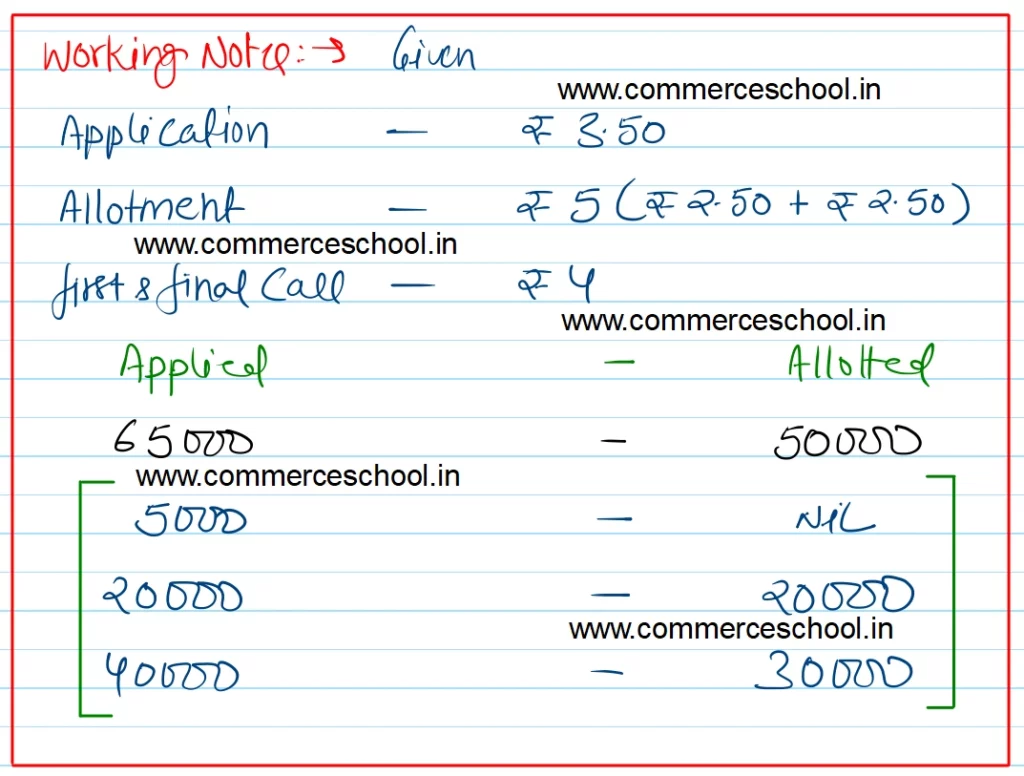 Working Note:→ Given
www.commerceschool.in
Application — ₹ 3.50
Allotment — ₹ 5 (₹ 2.50 + ₹ 2.50)
www.commerceschool.in
first & final Call — ₹ 4
www.commerceschool.in
Applied — Allotted
65000 — 50000
www.commerceschool.in
5000 — NIL
20000 — 20000
www.commerceschool.in
40000 — 30000